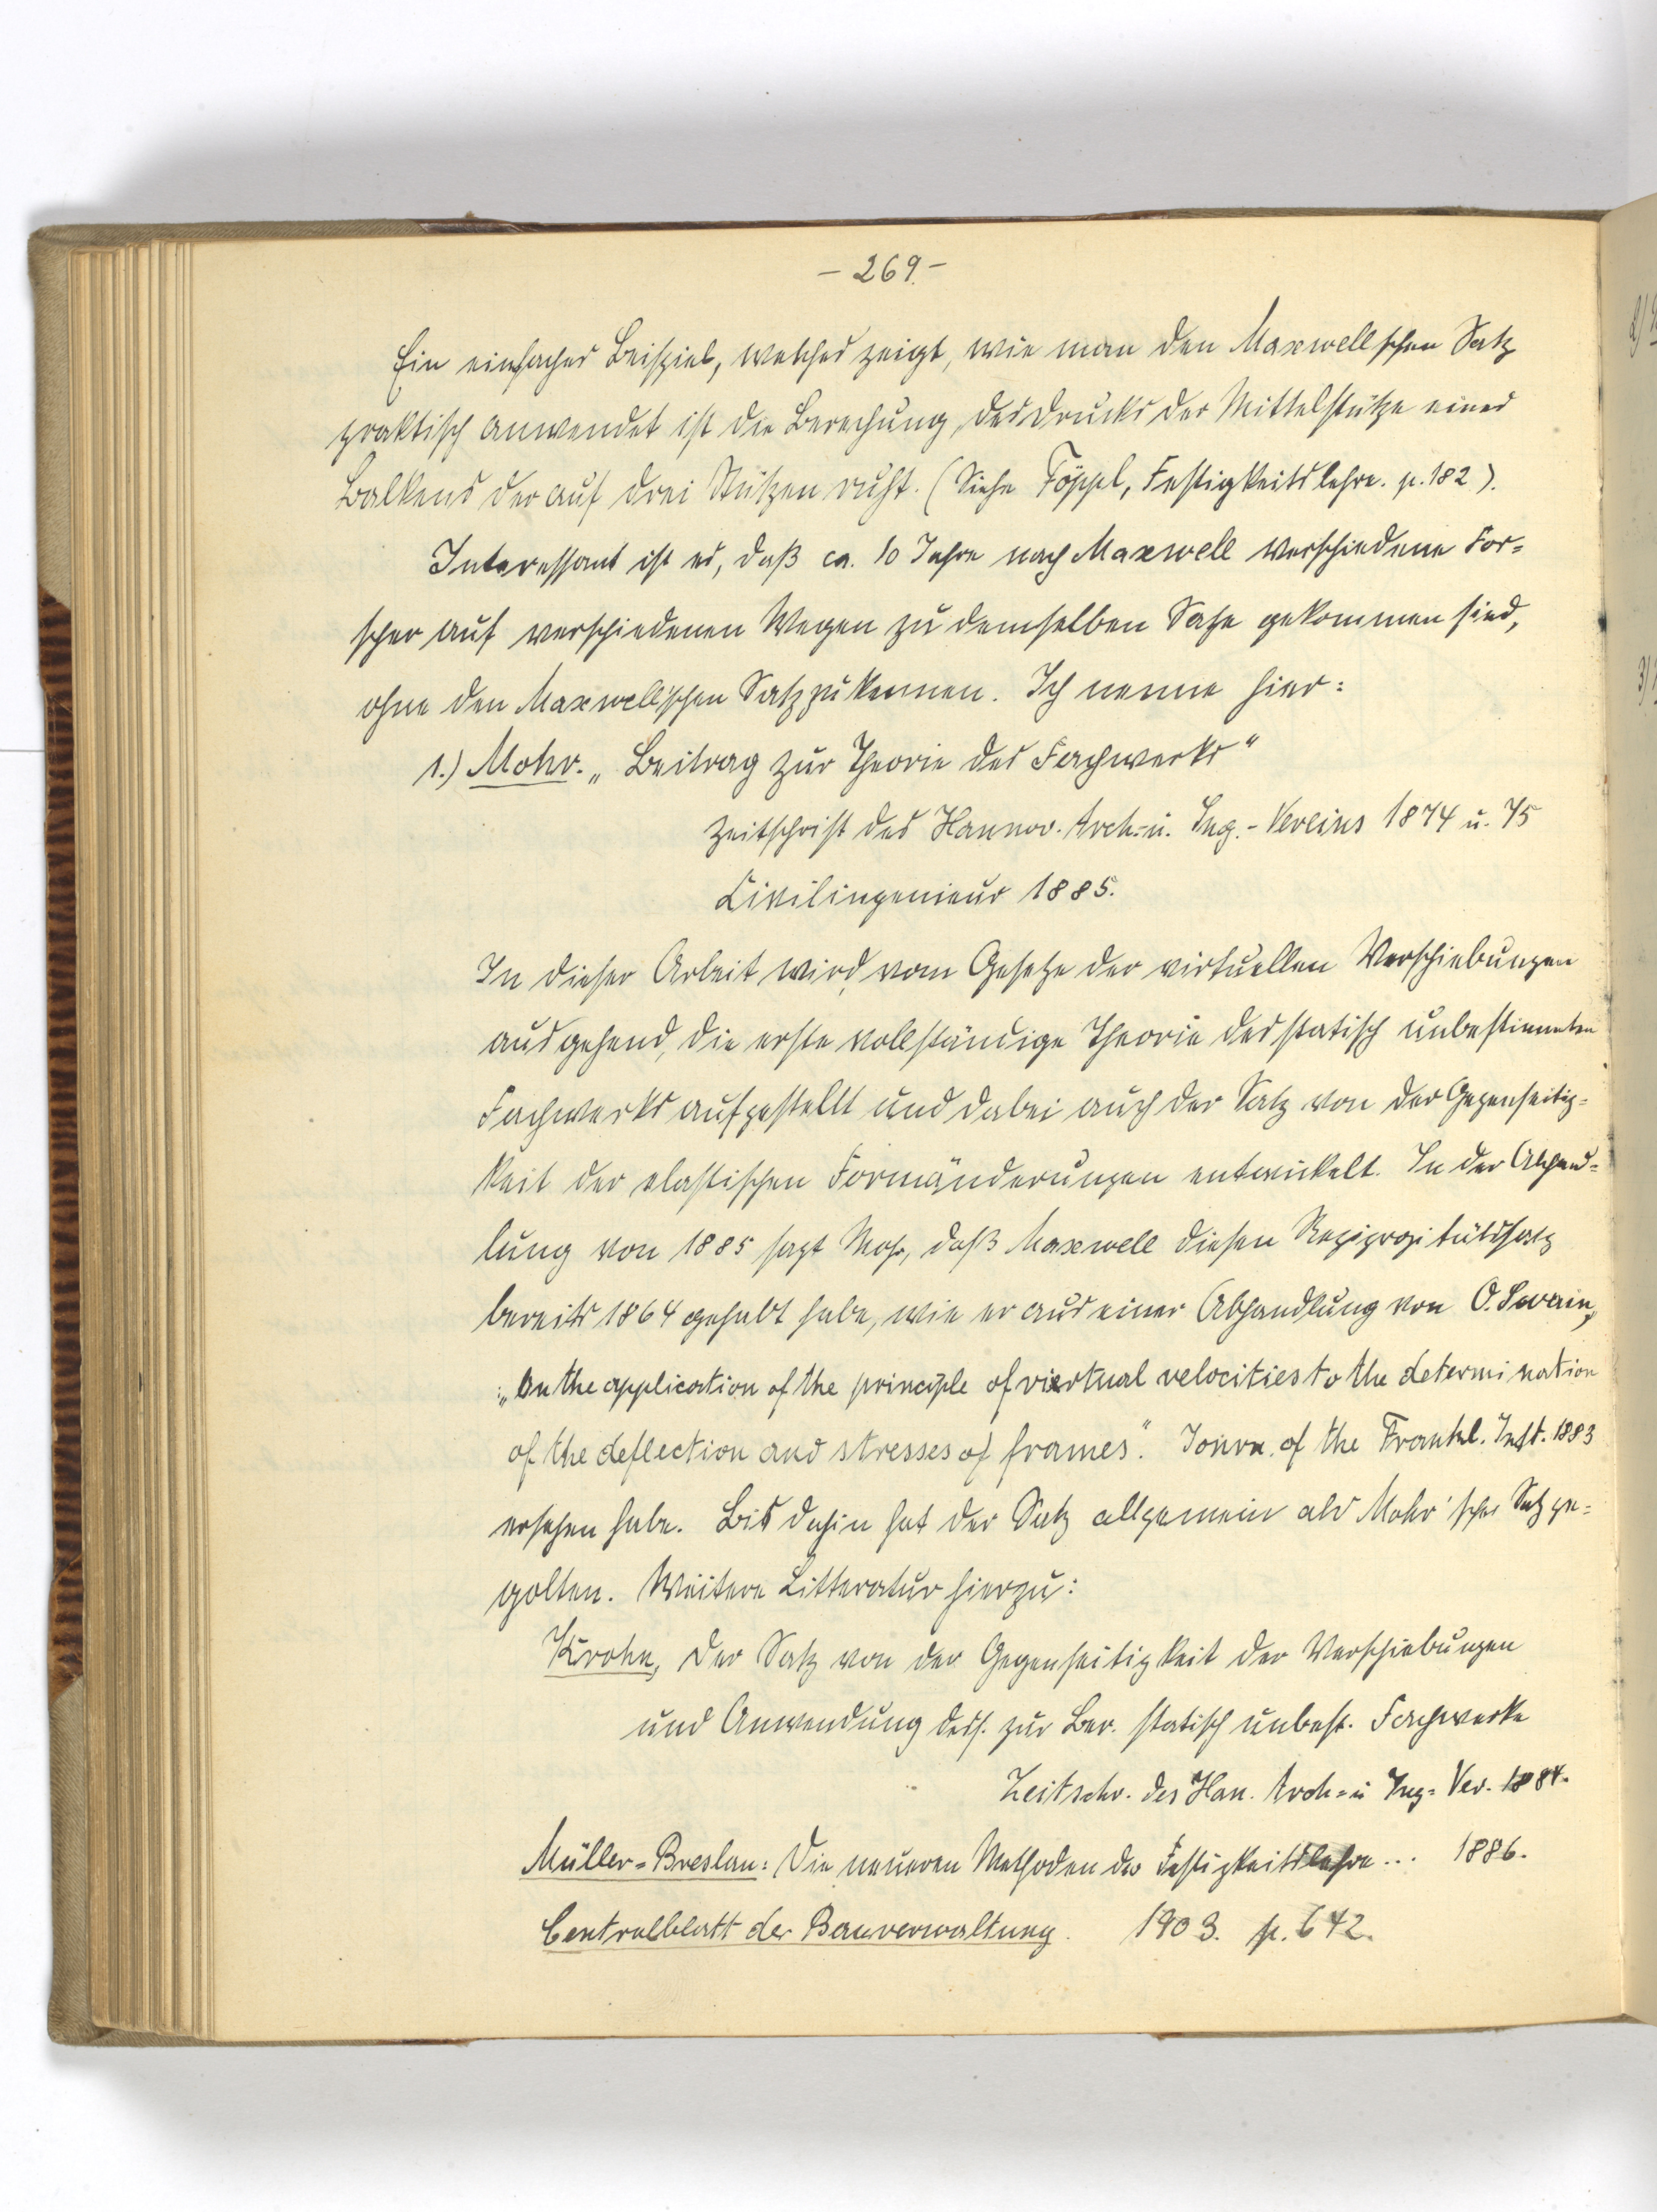 - 269. -
Ein einfaches Beispiel, welches zeigt, wie man den Maxwellschen Satz
praktisch anwendet ist die Berechung, des Drucks der Mittelstütze eines
Balkens der auf drei Stützen ruht. (Siehe Föppl, Festigkeitslehre. p. 182).
Interessant ist es, daß ca. 10 Jahre nach Maxwell verschiedene For=
scher auf verschiedenen Wegen zu demselben Satze gekommen sind,
ohne den Maxwell'schen Satz zu kennen. Ich nenne hier:
1.) Mohr. „Beitrag zur Theorie des Fachwerks"
Zeitschrift des Hannov. Arch.= u. Ing.-Vereins 1874 u. 75
Civilingenieur 1885.
In dieser Arbeit wird, vom Gesetze der virtuellen Verschiebungen
ausgehend, die erste vollständige Theorie des statisch unbestimmten
Fachwerks aufgestellt und dabei auch der Satz von der Gegenseitig=
keit der elastischen Formänderungen entwickelt. In der Abhand=
lung von 1885 sagt Mohr, daß Maxwell diesen Reziprozitätssatz
bereits 1864 gehabt habe, wie er aus einer Abhandlung von O. Swain,
„On the application of the principle of virtual velocities to the determination
of the deflection and stresses of frames". Journ. of the Frankl. Inst. 1883
ersehen habe. Bis dahin hat der Satz allgemein als Mohr'scher Satz ge=
golten. Weitere Litteratur hierzu:
Krohn, Der Satz von der Gegenseitigkeit der Verschiebungen
und Anwendung dess. zur Ber. statisch unbest. Fachwerke
Zeitschr. des Han. Arch= u Ing= Ver. 1884.
Müller=Breslau: Die neueren Methoden der Festigkeitslehre ... 1886.
Centralblatt der Bauverwaltung. 1903. p. 642.